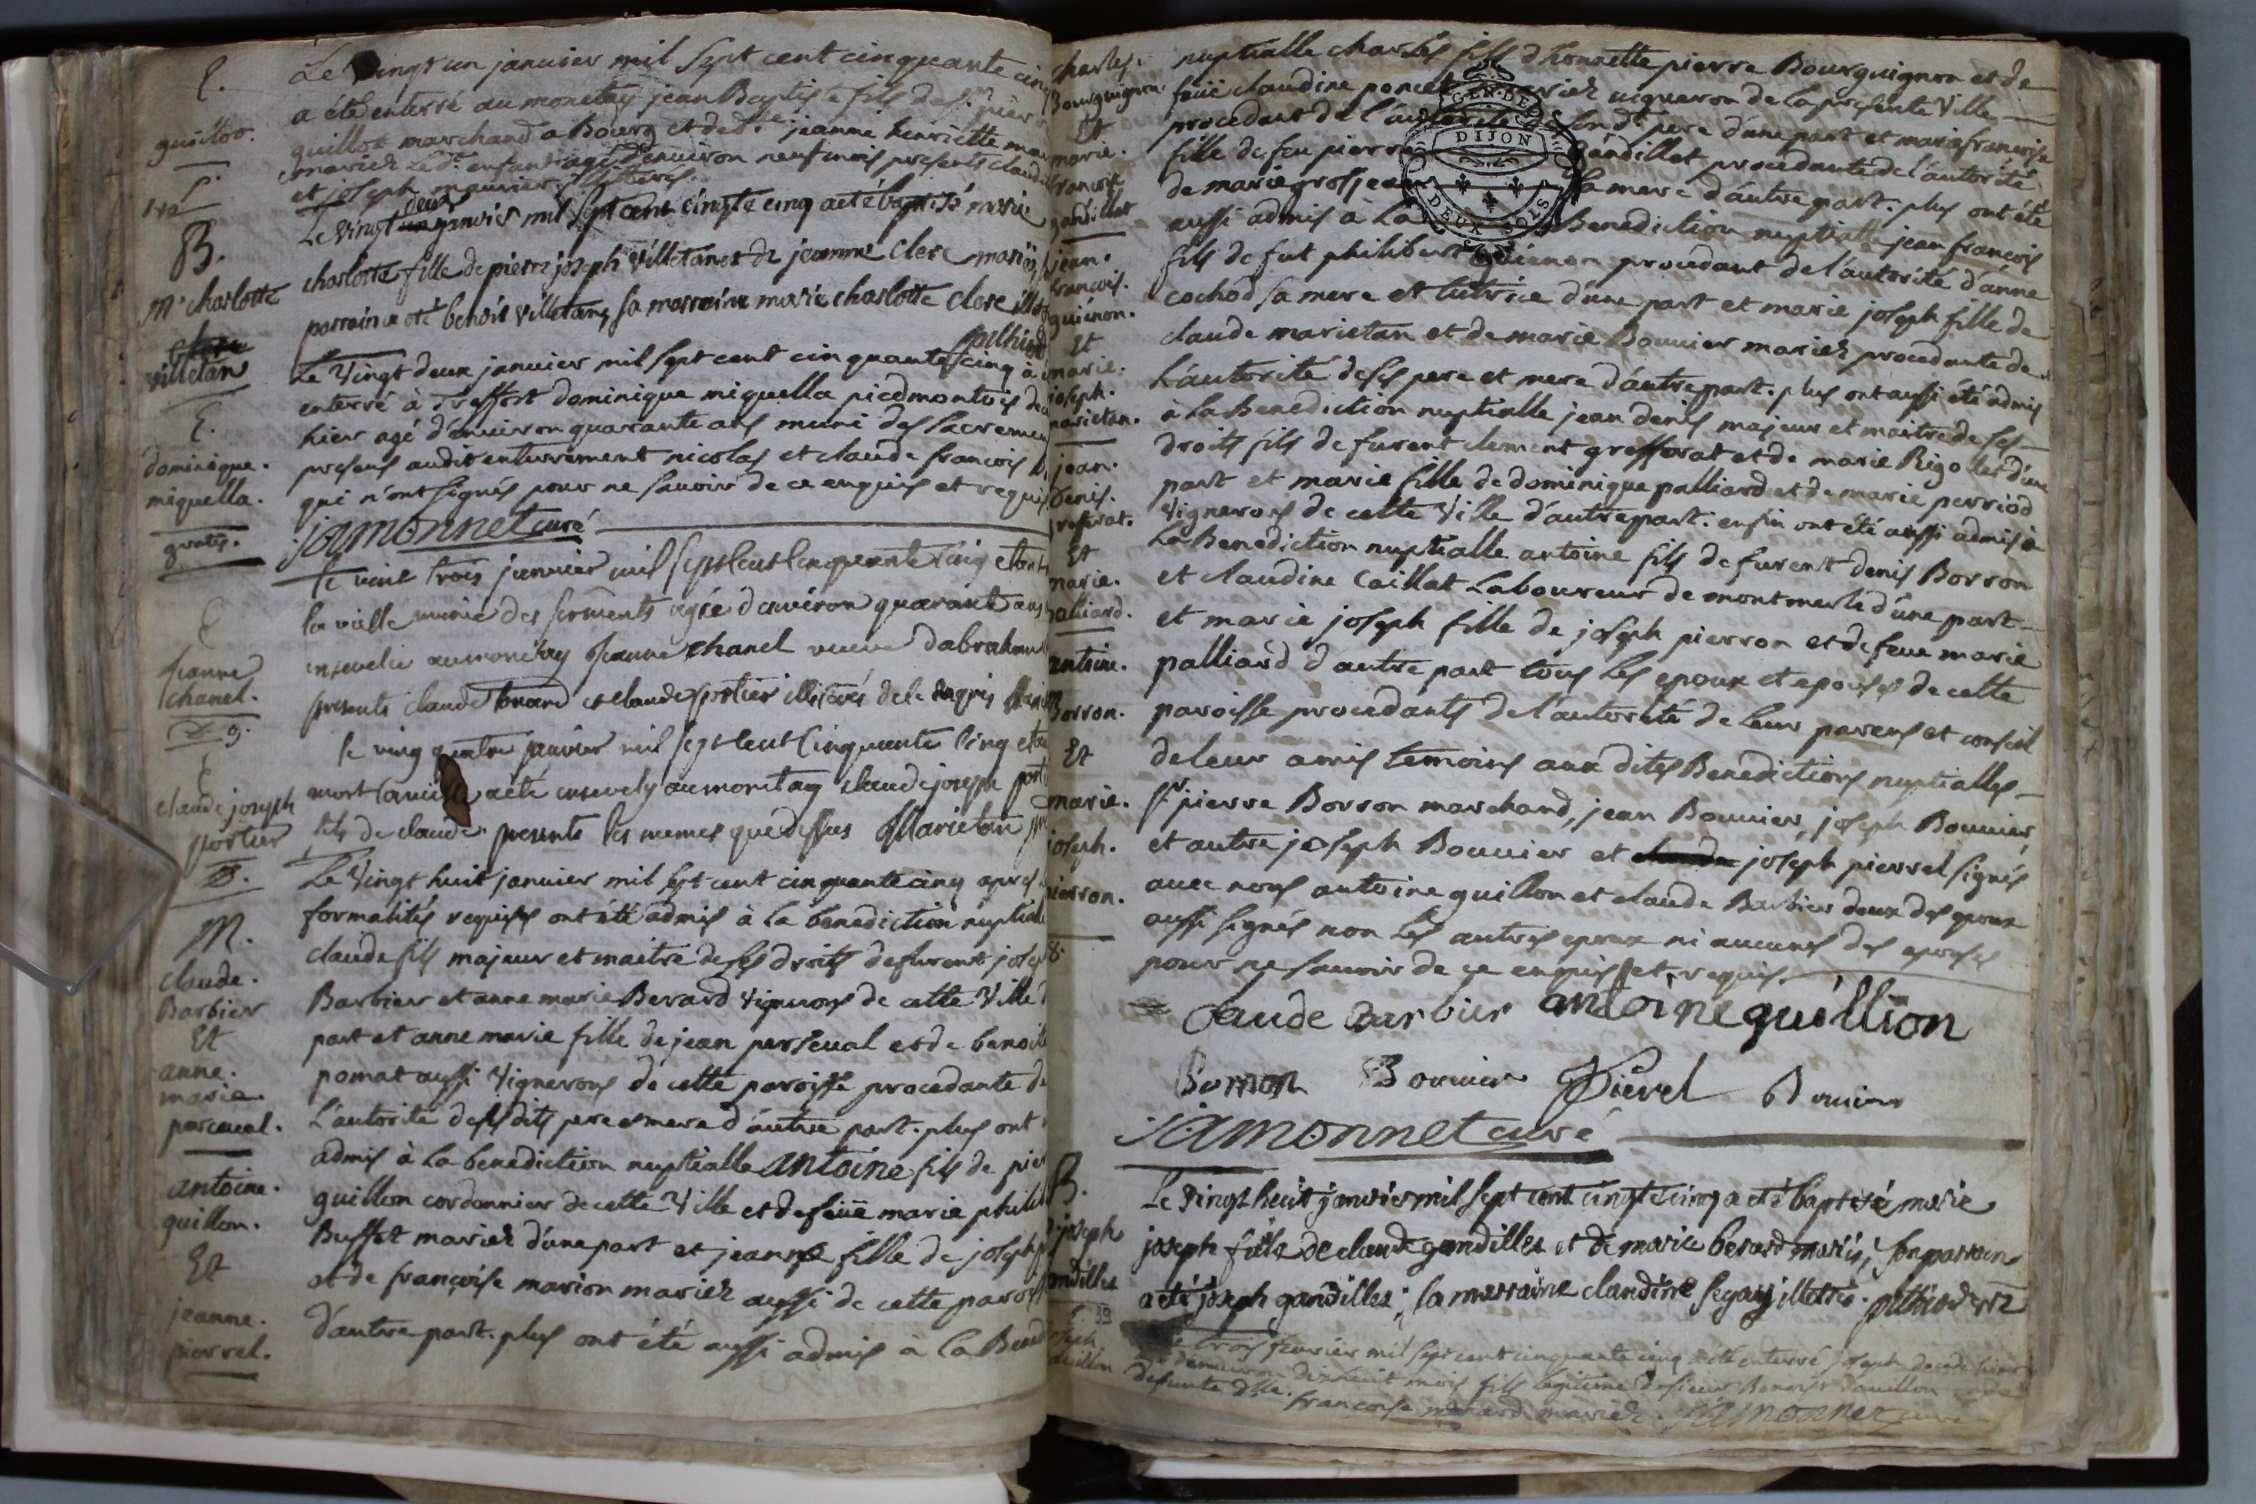 E.
guillot.
Le vingt un janvier mil sept cent cinquante cinq
a été enterré au monetay jean Baptiste fils de sr. pierre
guillot marchand a Bourg et de dlle. jeanne henriette
mariez Le dt. enfant agé d'environ neuf mois presents claude
et joseph
B.
Mie charlotte
villetan
Le vingt deux janvier mil sept cent cinqte cinq a eté baptisé marie
charlotte fille de pierre joseph villetan et de jeanne clerc mariés,
parrain a eté benoit villetan, sa marraine marie charlotte clerc
E.
dominique.
miquella.
gratis.
Le vingt deux janvier mil sept cent cinquante cinq a
enterré à Treffort dominique miquella piedmontois
hier agé d'environ quarante ans muni des sacremen
presens audit enterrement nicolas et claude francois
qui n'ont signés pour ne savoir de ce enquis et requis.
jamonnet curé
E
Jeanne
chanel.
Le vint trois janvier mil sept cent cinquante cinq
la veille munie des sacrements agée d'environ quarante ans
ensevelie au monetay Jeanne chanel veuve d'abraham
presents claude et claude portier illiterés de ce enquis
E
claude joseph
portier
le ving quatre janvier mil sept cent cinquante cinq
mort la veille a eté ensevely au monetay claude joseph
fils de claude. presents les memes que dessus Marietan
M.
claude.
Barbier
Et
anne.
marie.
perceval.
Le vingt huit janvier mil sept cent cinquante cinq apres
formalités requises ont été admis à la benediction nuptiale
claude fils majeur et maitre de ses droits de furent joseph
Barbier et anne marie Berard vignerons de cette ville
part et anne marie fille de jean perseval et de benoite
pomat aussi vignerons de cette paroisse procedante de
L'autorité de sesdits pere et mere d'autre part. plus ont
antoine.
guillon.
Et
jeanne.
pierrel.
admis à La benediction nuptialle antoine fils de
guillon cordonnier de cette ville et de feüe marie
Buffet mariez d'une part et jeanne fille de joseph
et de françoise marion mariez aussi de cette paroisse
d'autre part. plus ont été aussi admis a la Bened
charles.
Bourguignon.
Et
marie.
francoise
gandillet
nuptialle charles fils d'honnette pierre Bourguignon et de
feüe claudine poncet mariez vigneron de la presente ville
procedant de l'autorité de sondt. pere d'une part et marie francoise
fille de feu pierre gandillet procedante de l'autorité
de marie grosjean sa mere d'autre part. plus ont été
GEN. DE
DIJON
DEUX SOLS
jean.
francois.
guénon.
Et
marie.
joseph.
marietan.
aussi admis à La Benediction nuptialle jean francois
fils de fut philibert guenon procedant de l'autorité d'anne
cochod sa mere et tutrice d'une part et marie joseph fille de
claude marietan et de marie Bouvier mariez procedante de
L'autorité de ses pere et mere d'autre part. plus ont aussi été admis
jean.
denis.
Et
marie.
palliard.
à la Benediction nuptialle jean denis majeur et maitre de ses
droits fils de furent clement grefferat et de marie Rigollet d'une
part et marie fille de dominique palliard et de marie perriod
vignerons de cette ville d'autre part. enfin ont été aussi admis à
antoine.
Borron.
Et
marie.
joseph.
pierron.
La Benediction nuptialle antoine fils de furent denis Borron
et claudine Caillat Laboureur de montmerle d'une part
et marie joseph fille de joseph pierron et de feue marie
palliard d'autre part tous Les epoux et epouses de cette
paroisse procedants de l'autorité de Leur parens et conseil
de leur amis temoins aux dites Benedictions nuptialles
sr. pierre Borron marchand, jean Bouvier, joseph Bouvier
et autre joseph Bouvier et joseph pierrel signés
avec nous antoine guillon et claude Barbier deux des epoux
aussi signés non Les autres epoux ni aucunes des epouses
pour ne savoir de ce enquis et requis.
Claude Barbier antoine guillion
Borron Bouvier Pierel Bouvier
jamonnet curé
B.
joseph
Le vingt heuit janvier mil sept cent cinqte cinq a eté baptisé marie
joseph fille de claude gandilles et de marie berard mariés, son parrain
a eté joseph gandilles; sa marraine claudine segay illettrés.
Le trois fevrier mil sept cent cinquante cinq a été enterré joseph decedé hier
d'environ dixhuit mois fils legitime de sieur Benoist douillon et de
defunte dlle. francoise mariez. jamonnet curé